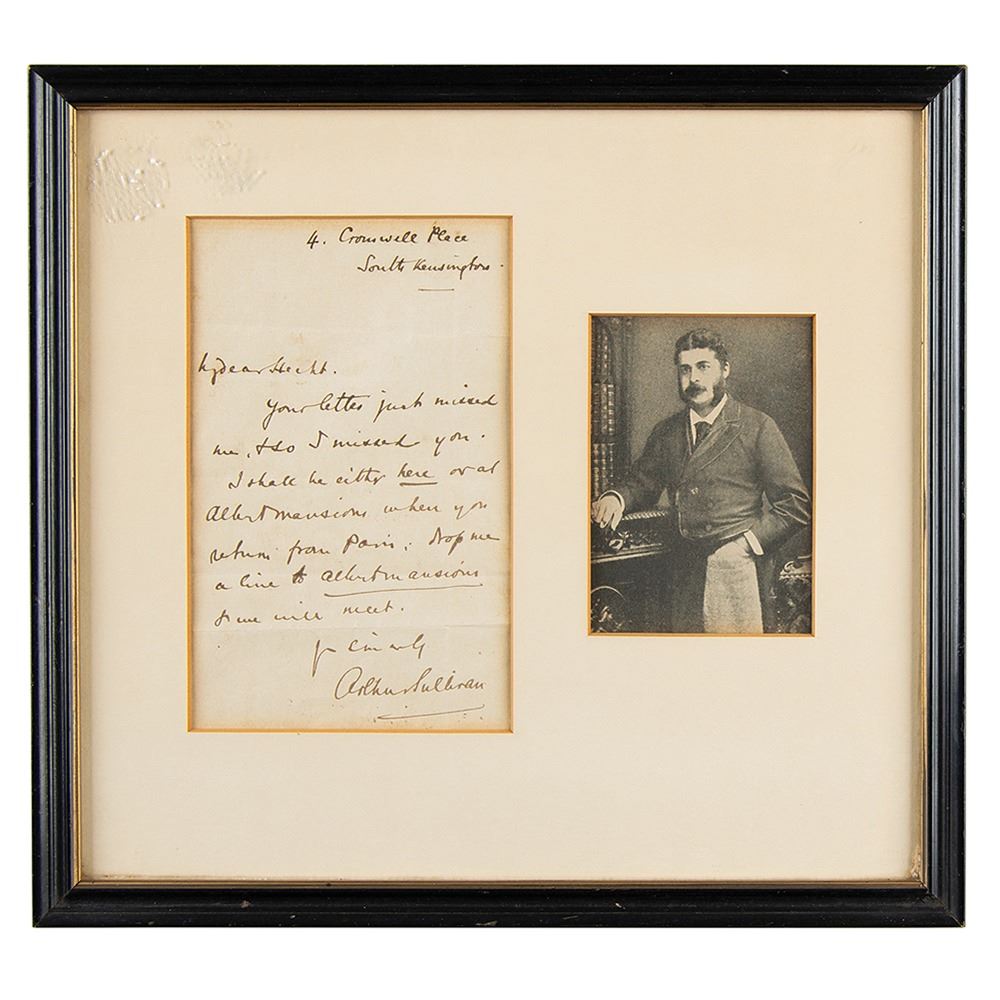 4. Cromwell Place
South Kensington.
My dear Hecht.
Your letter just missed
me, & so I missed you.
I shall be either here or at
Albert mansions when you
return from Paris; drop me
a line to Albert mansions
& we will meet.
Yrs sincerely
Arthur Sullivan